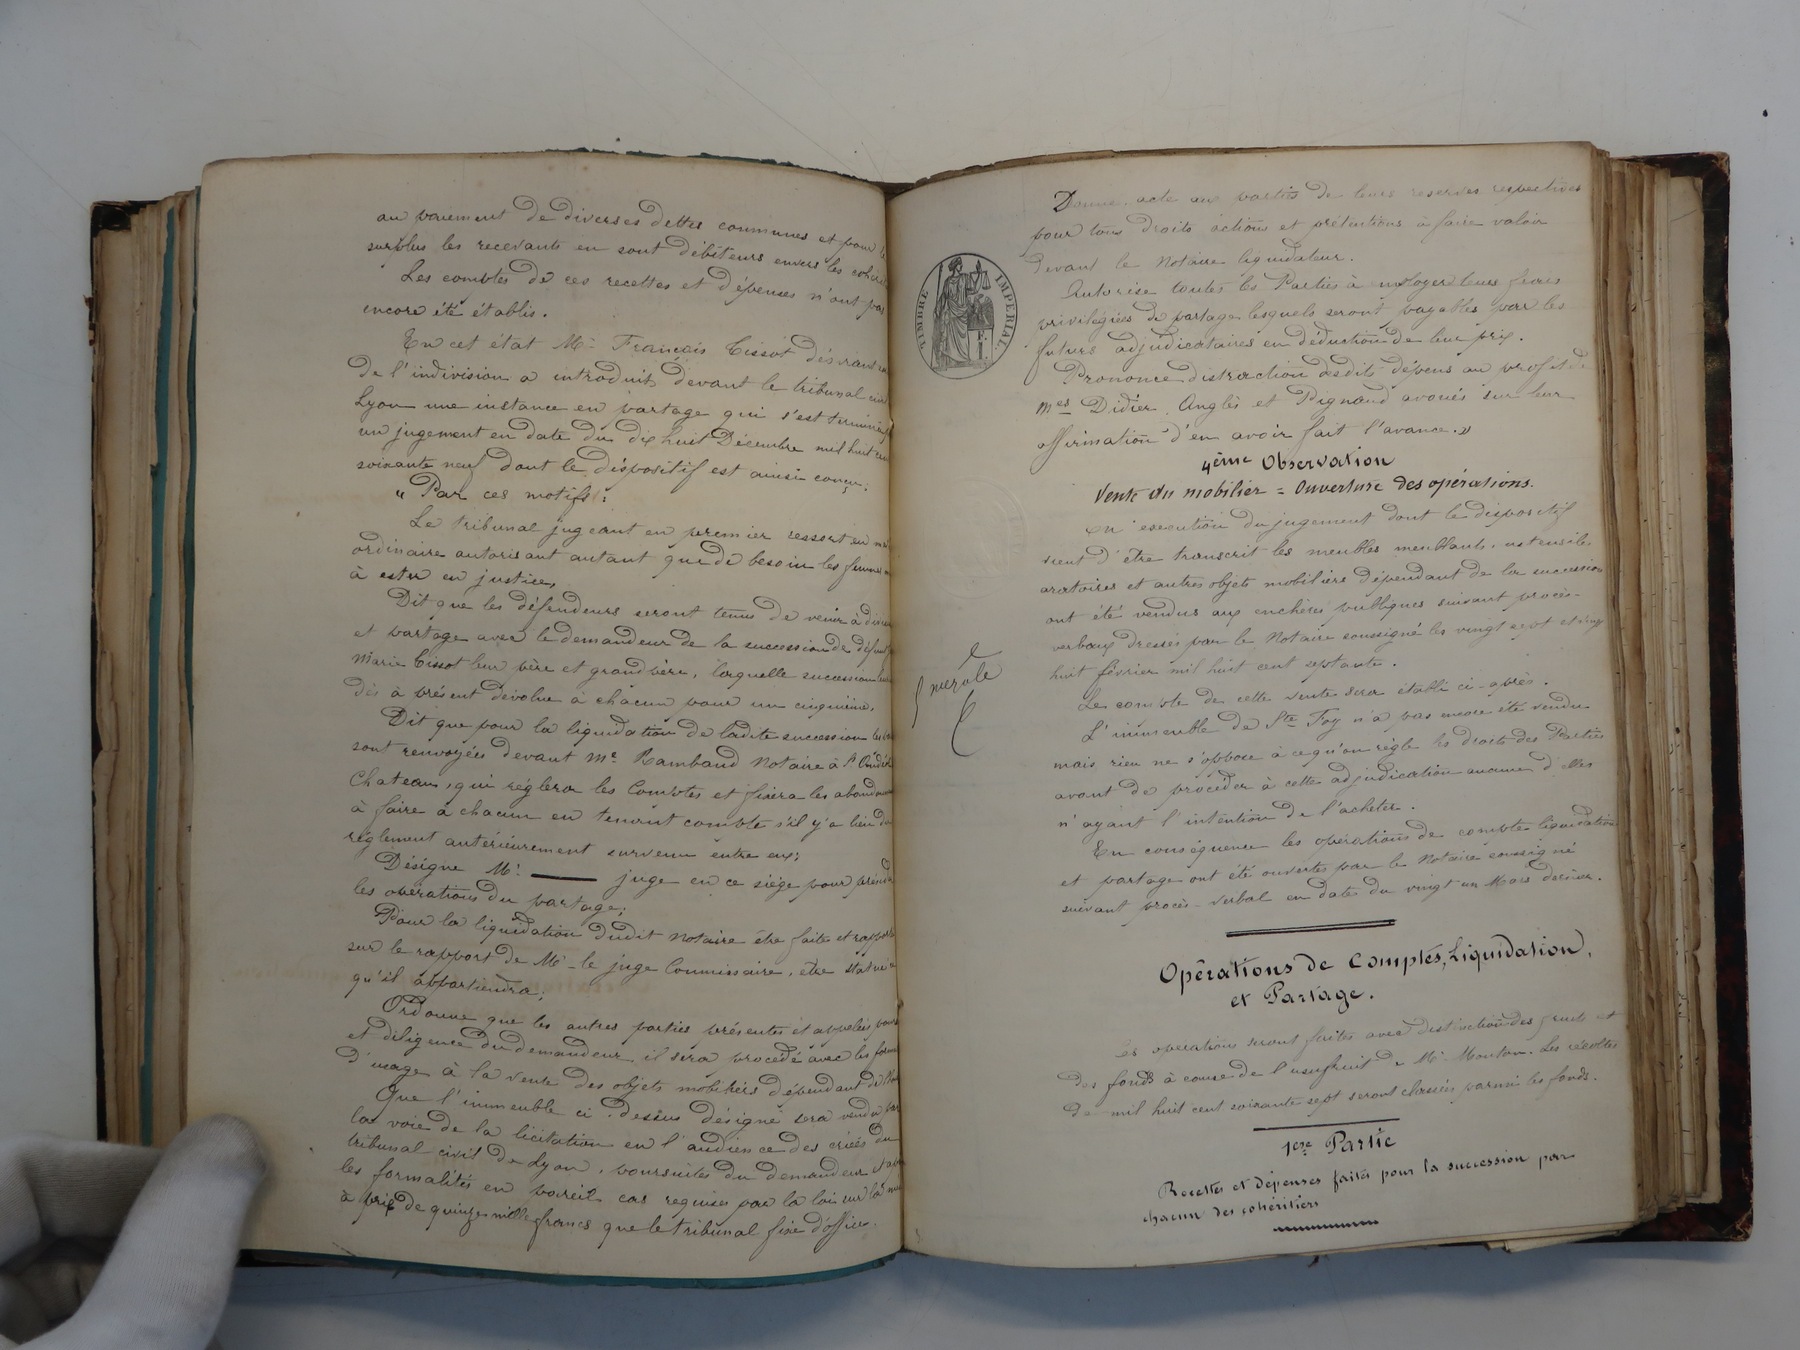 au paiement de diverses dettes communes et pour le
surplus les recevants en sont débiteurs envers les cohér
Les comptes de ces recettes et dépenses n'ont pas
encore été établis.
En cet état Mr François Tissot désirant
de l'indivision a introduit devant le tribunal civil
Lyon une instance en partage qui s'est terminée
un jugement en date du dix huit Décembre mil huit cent
soixante neuf dont le dispositif est ainsi conçu:
"Par ces motifs:
Le tribunal jugeant en premier ressort en
ordinaire autorisant autant que de besoin les femmes
à ester en justice,
Dit que les défendeurs seront tenus de venir à division
et partage avec le demandeur de la succession de défunt
Marie Tissot leur père et grand père, laquelle succession
dès à présent dévolue à chacun pour un cinquième,
Dit que pour la liquidation de ladite succession les
sont renvoyées devant Me Rambaud Notaire à St Didier
Chateau, qui règlera les Comptes et fixera les abandon
à faire à chacun en tenant compte s'il y a lieu du
règlement antérieurement survenu entre eux;
Désigne Mr ——— juge en ce siège pour présider
les opérations du partage;
Pour la liquidation dudit notaire être faite et rapportée
sur le rapport de Mr le juge Commissaire, être statué
qu'il appartiendra;
Ordonne que les autres parties présentes et appelées pour
et diligence du demandeur il sera procédé avec les formes
d'usage à la vente des objets mobiliers dépendant de
Que l'immeuble ci-dessus désigné sera vendu par
la voie de la licitation en l'audience des criées du
tribunal civil de Lyon, poursuites du demandeur et
les formalités en pareil cas requises par la loi sur la
à prix de quinze mille francs que le tribunal fixe d'office.
Donne acte aux parties de leurs réserves respectives
pour tous droits actions et prétentions à faire valoir
devant le Notaire liquidateur.
TIMBRE IMPERIAL
Autorise toutes les Parties à employer leurs frais
privilégiés de partage lesquels seront payables par les
futurs adjudicataires en déduction de leur prix.
Prononce distraction desdits dépens au profit de
Mes Didier, Anglès et Pignaud avoués sur leur
affirmation d'en avoir fait l'avance."
4ème Observation
Vente du mobilier = Ouverture des opérations.
En exécution du jugement dont le dispositif
vient d'être transcrit les meubles meublants, ustensiles
aratoires et autres objets mobiliers dépendant de la succession
ont été vendus aux enchères publiques suivant procès-
verbaux dressés par le Notaire soussigné les vingt sept et vingt
huit février mil huit cent septante.
Le compte de cette vente sera établi ci-après.
L'immeuble de Ste Foy n'a pas encore été vendu
mais rien ne s'oppose à ce qu'on règle les droits des Parties
avant de procéder à cette adjudication aucune d'elles
n'ayant l'intention de l'acheter.
En conséquence les opérations de comptes liquidation
et partage ont été ouvertes par le Notaire soussigné
suivant procès-verbal en date du vingt un Mars dernier.
Opérations de Comptes, Liquidation,
et Partage.
Les opérations seront faites avec distinction des fruits et
des fonds à cause de l'usufruit de Mr Mouton. Les récoltes
de mil huit cent soixante sept seront classées parmi les fonds.
1ère Partie
Recettes et dépenses faites pour la succession par
chacun des cohéritiers